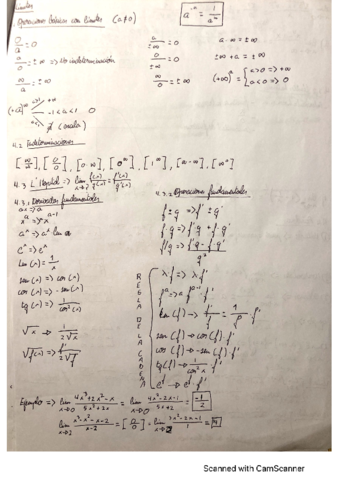 Límites
Operaciones básicas con límites (a≠0)
a⁻ⁿ = 1/aⁿ
0/a = 0
a/±∞ = 0
a·∞ = ±∞
a/0 = ±∞ => indeterminación
0/±∞ = 0
±∞ + a = ±∞
∞/a = ±∞
∞/0 = ±∞
(+∞)ᵃ = { a>0 => +∞
a<0 => 0
-1<a<1 0
∄ (oscila)
4.2 Indeterminaciones
[∞/∞], [0/0], [0·∞], [0⁰], [1^∞], [∞-∞], [∞⁰]
4.3 L'Hôpital => lim f(x)/g(x) = f'(x)/g'(x)
4.3.1 Derivadas fundamentales
ax => a
aˣ => aˣ ln a
eˣ => eˣ
sen(x) => cos(x)
cos(x) => -sen(x)
tg(x) => 1/cos²(x)
√x => 1/2√x
√f(x) => f'/2√f
4.3.2 Operaciones fundamentales
f ± g => f' ± g'
f·g => f'g + f·g'
f/g => f'g - f·g'/g²
REGLA DE LA CADENA
λf => λf'
sen(f) -> cos(f)·f'
cos(f) -> -sen(f)·f'
eᶠ -> eᶠ·f'
Ejemplo => lim x→0 4x³+2x²-x/5x²+2x = lim x→0
= -1/2
lim x→2 x³-x²-x-2/x-2 = [0/0] = lim x→2 3x²-2x-1/1 =
Scanned with CamScanner